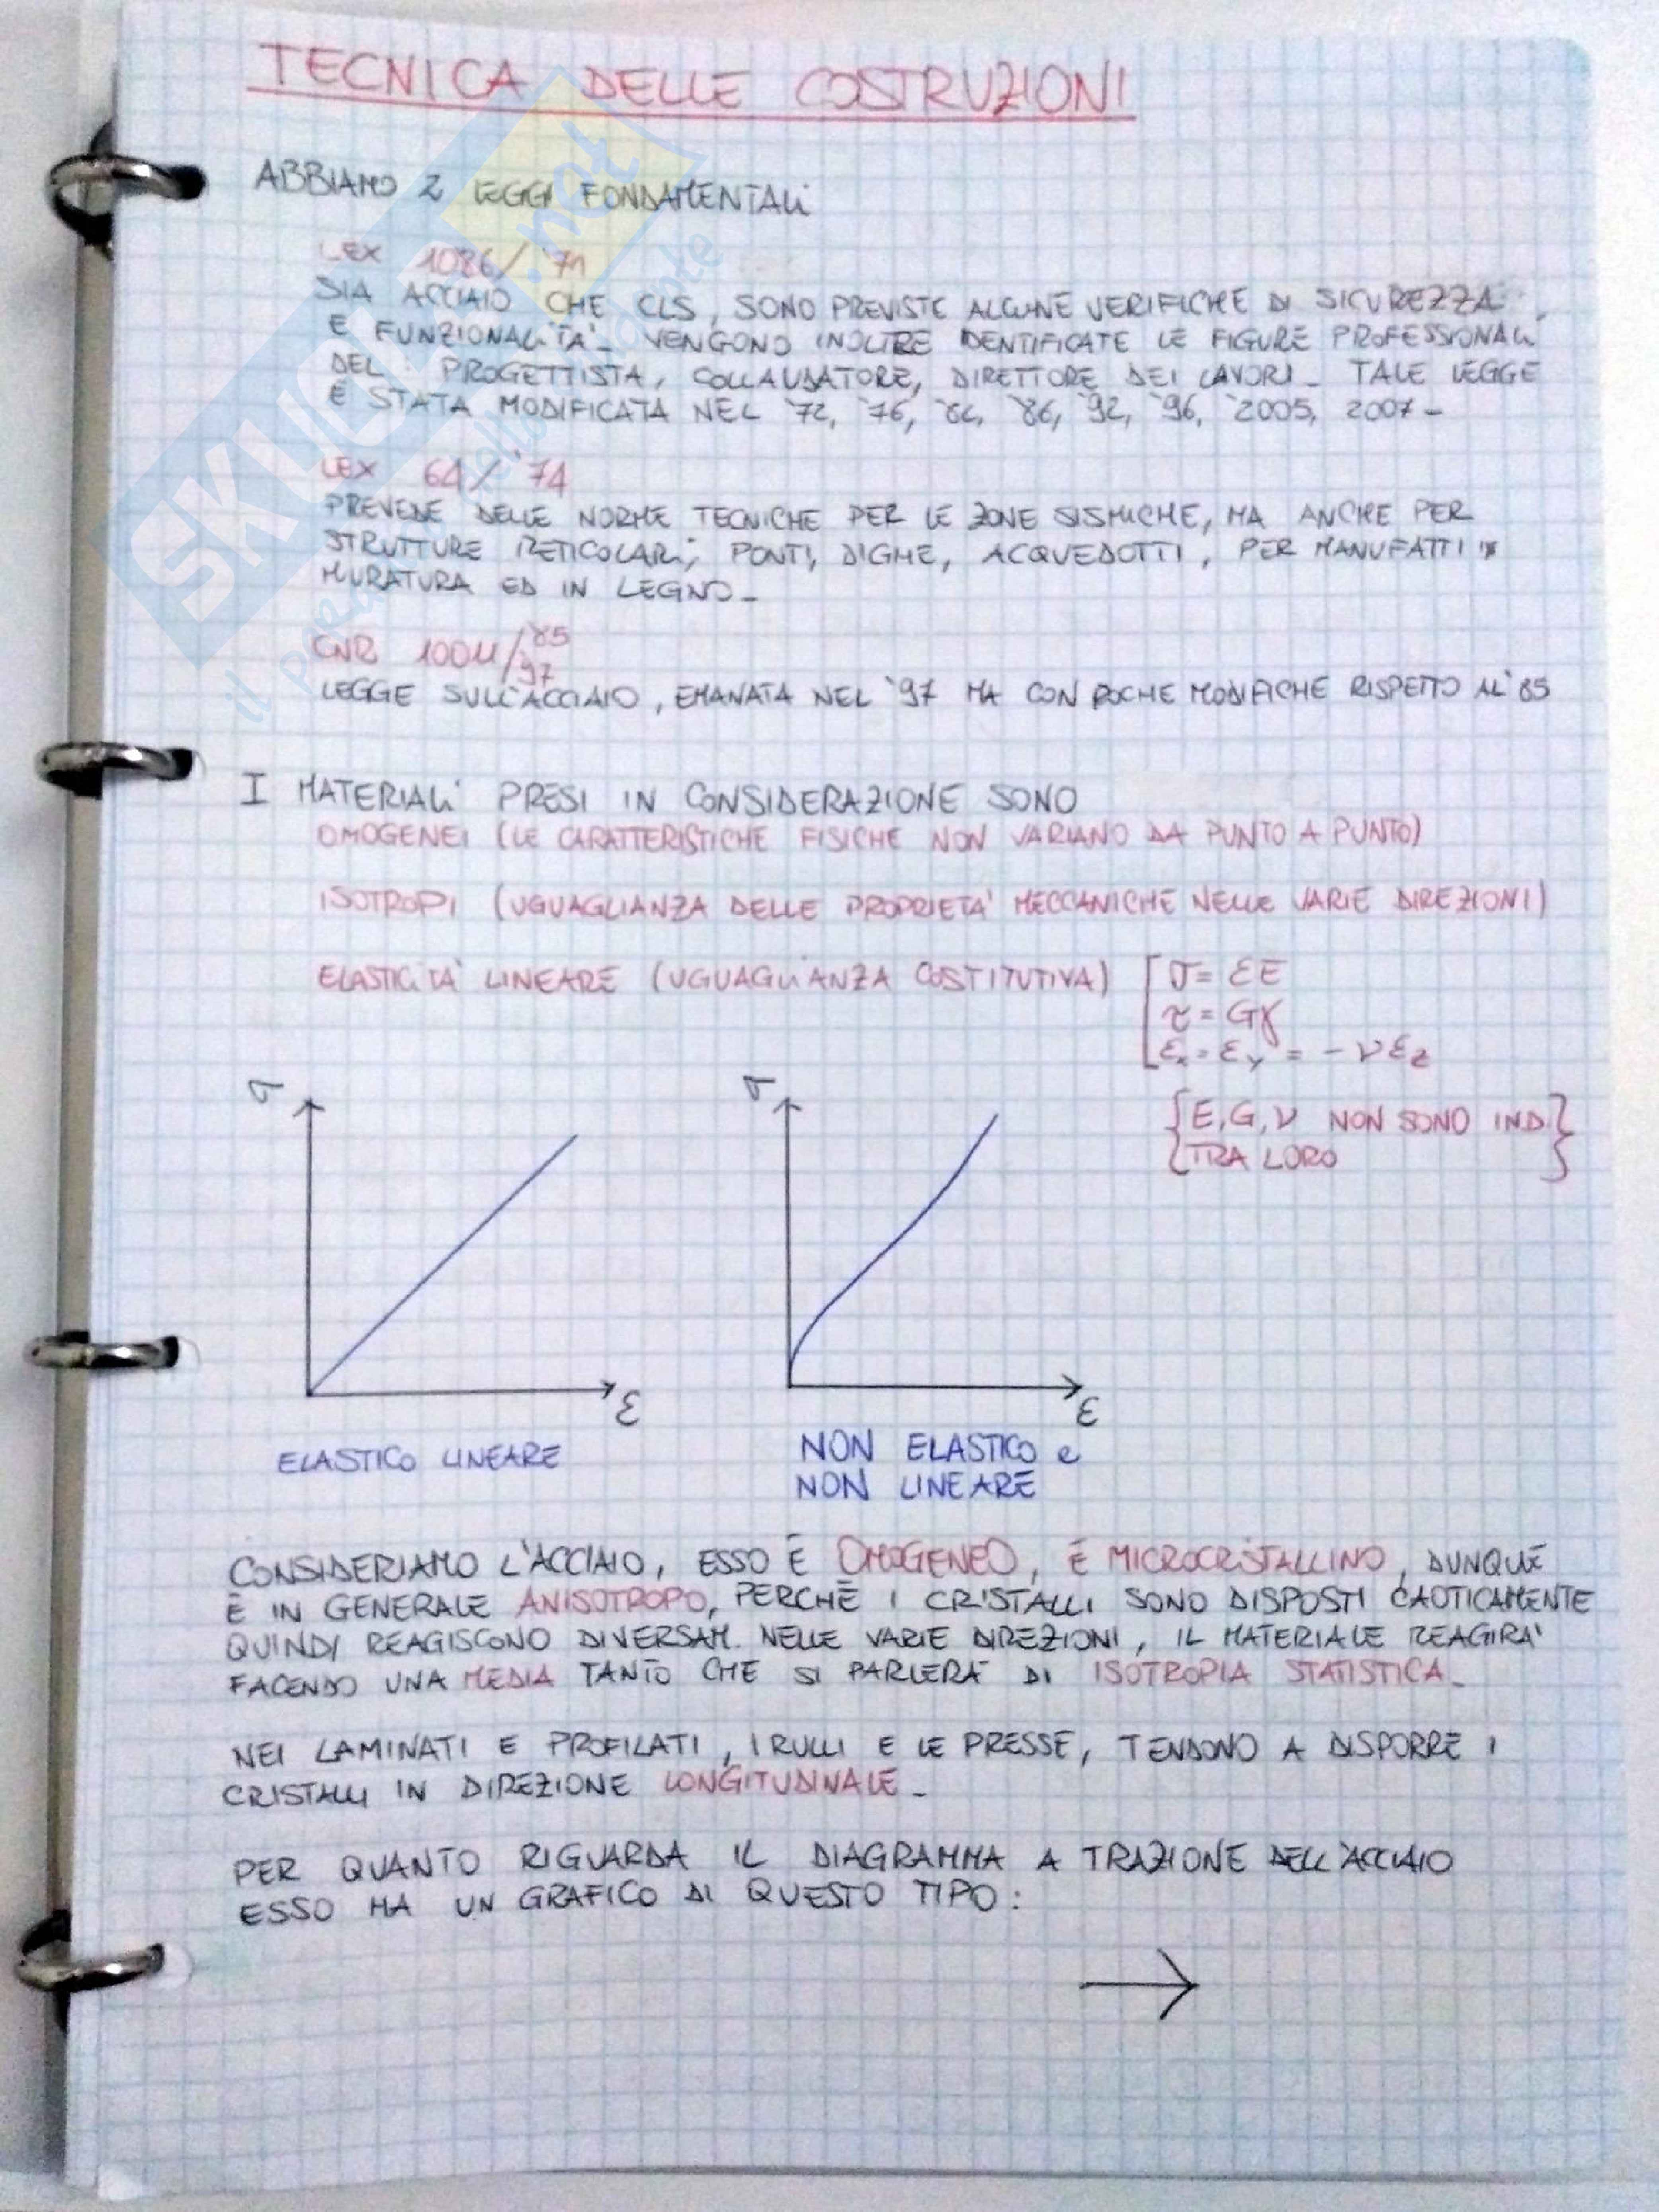 TECNICA DELLE COSTRUZIONI
ABBIAMO 2 LEGGI FONDAMENTALI
LEX 1086/'71
SIA ACCIAIO CHE CLS, SONO PREVISTE ALCUNE VERIFICHE DI SICUREZZA
E FUNZIONALITA'_ VENGONO INOLTRE IDENTIFICATE LE FIGURE PROFESSIONALI
DEL PROGETTISTA, COLLAUDATORE, DIRETTORE DEI LAVORI_ TALE LEGGE
È STATA MODIFICATA NEL '72, '76, '86, '92, '96, '2005, 2007_
LEX 64/'74
PREVEDE DELLE NORME TECNICHE PER LE ZONE SISMICHE, MA ANCHE PER
STRUTTURE RETICOLARI, PONTI, DIGHE, ACQUEDOTTI, PER MANUFATTI IN
MURATURA ED IN LEGNO_
CNR 10011/'85 '97
LEGGE SULL'ACCIAIO, EMANATA NEL '97 MA CON POCHE MODIFICHE RISPETTO AL '85
I MATERIALI PRESI IN CONSIDERAZIONE SONO
OMOGENEI (LE CARATTERISTICHE FISICHE NON VARIANO DA PUNTO A PUNTO)
ISOTROPI (UGUAGLIANZA DELLE PROPRIETA' MECCANICHE NELLE VARIE DIREZIONI)
ELASTICITA' LINEARE (UGUAGLIANZA COSTITUTIVA) [σ = εE
τ = Gγ
εx = εy = -νεz
{E, G, ν NON SONO IND.
TRA LORO}
σ
σ
ε
ε
ELASTICO LINEARE
NON ELASTICO e
NON LINEARE
CONSIDERIAMO L'ACCIAIO, ESSO È OMOGENEO, È MICROCRISTALLINO, DUNQUE
È IN GENERALE ANISOTROPO, PERCHÈ I CRISTALLI SONO DISPOSTI CAOTICAMENTE
QUINDI REAGISCONO DIVERSAM. NELLE VARIE DIREZIONI, IL MATERIALE REAGIRA'
FACENDO UNA MEDIA TANTO CHE SI PARLERA' DI ISOTROPIA STATISTICA_
NEI LAMINATI E PROFILATI, I RULLI E LE PRESSE, TENDONO A DISPORRE I
CRISTALLI IN DIREZIONE LONGITUDINALE_
PER QUANTO RIGUARDA IL DIAGRAMMA A TRAZIONE DELL'ACCIAIO
ESSO HA UN GRAFICO DI QUESTO TIPO:
SKUOLA.net